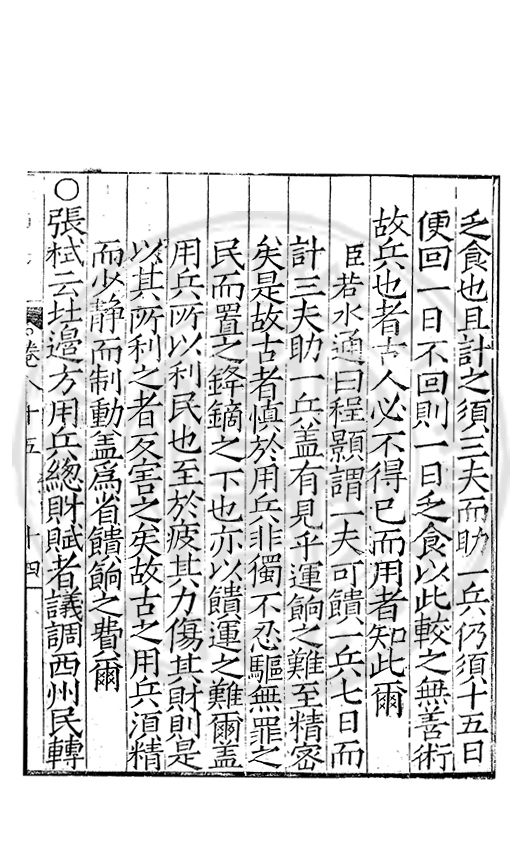 乏食也且計之須三夫而助一兵仍須十五日
便回一日不回則一日乏食以此較之無善術
故兵也者古人必不得已而用者知此爾
臣若水通曰程顥謂一夫可饋一兵七日而
計三夫助一兵盖有見乎運餉之難至精密
矣是故古者慎於用兵非獨不忍驅無罪之
民而置之鋒鏑之下也亦以饋運之難爾盖
用兵所以利民也至於疲其力傷其財則是
以其所利之者反害之矣故古之用兵湏精
而少静而制動盖爲省饋餉之費爾
○張栻云拄邉方用兵緫財賦者議調西州民轉
卷八十五 十四